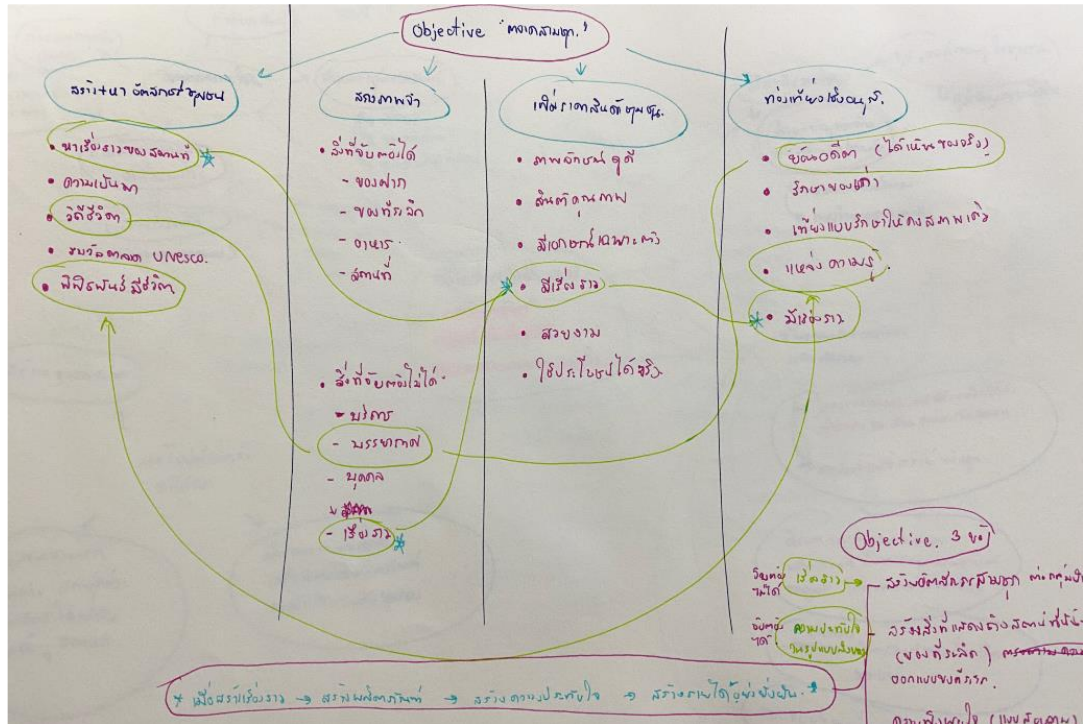 Objective "ตลาดสามชุก."
สร้าง+หา อัตลักษณ์ชุมชน
• หาเรื่องราวของสถานที่
• ความเป็นมา
• วิถีชีวิต
• รางวัลตลาด UNESCO.
• พิพิธภัณฑ์มีชีวิต
สร้างภาพจำ
• สิ่งที่จับต้องได้
- ของฝาก
- ของที่ระลึก
- อาหาร
- สถานที่
• สิ่งที่จับต้องไม่ได้
- บริการ
- บรรยากาศ
- บุคคล
- เรื่องราว
เพิ่มราคาสินค้าชุมชน.
• ภาพลักษณ์ดูดี
• สินค้าคุณภาพ
• มีเอกลักษณ์เฉพาะตัว
• มีเรื่องราว
• สวยงาม
• ใช้ประโยชน์ได้จริง
ท่องเที่ยวเชิงอนุรักษ์.
• ย้อนอดีต (ได้เห็นของจริง)
• รักษาของเก่า
• เที่ยวแบบรักษาให้คงสภาพเดิม
• แหล่งความรู้
• มีเรื่องราว
Objective. 3 ข้อ
จับต้องไม่ได้
เรื่องราว
สร้างอัตลักษณ์สามชุก
จับต้องได้
ความประทับใจ
ในรูปแบบสิ่งของ
สร้างสิ่งที่แสดงถึงสถานที่
(ของที่ระลึก)
ออกแบบของที่ระลึก
* เมื่อสร้างเรื่องราว → สร้างผลิตภัณฑ์ → สร้างความประทับใจ → สร้างรายได้อย่างยั่งยืน. *